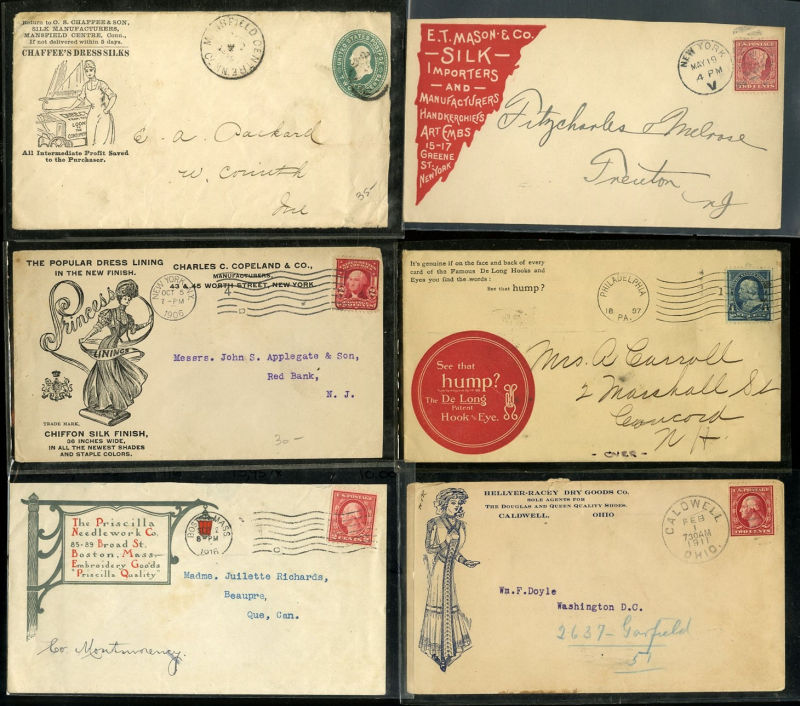 Return to O. S. CHAFFEE & SON,
SILK MANUFACTURERS,
MANSFIELD CENTRE, Conn.,
If not delivered within 5 days.
CHAFFEE'S DRESS SILKS
DIRECT
FROM THE
LOOM
TO THE
CONSUMER
All Intermediate Profit Saved
to the Purchaser.
MANSFIELD CENTRE
E. A. Packard
W. Corinth
Me
35-
E.T. MASON & CO.
-SILK-
IMPORTERS
-AND-
MANUFACTURERS
HANDKERCHIEFS
ART EMBS
15-17
GREENE
ST.
NEW YORK
NEW YORK
MAY 19
4 PM
V
TWO CENTS
Fitzcharles & Melrose
Trenton
NJ
THE POPULAR DRESS LINING
IN THE NEW FINISH.
Princess
LININGS
TRADE MARK,
CHIFFON SILK FINISH,
36 INCHES WIDE,
IN ALL THE NEWEST SHADES
AND STAPLE COLORS.
CHARLES C. COPELAND & CO.,
MANUFACTURERS,
43 & 45 WORTH STREET, NEW YORK
NEW YORK, N.Y.
OCT 5
1-PM
1906
4
Messrs. John S. Applegate & Son,
Red Bank,
N. J.
30-
It's genuine if on the face and back of every
card of the Famous De Long Hooks and
Eyes you find the words:
See that hump?
PHILADELPHIA
18 97
PA.
1
See that
hump?
The De Long
Patent
Hook and Eye.
Mrs. A Carroll
2 Marshall St
Concord
N H.
-OVER-
The Priscilla
Needlework Co.
85-89 Broad St.
Boston, Mass.
Embroidery Goods
"Priscilla Quality"
BOSTON, MASS.
8-PM
1916
U.S. POSTAGE
2 CENTS 2
Madme. Juilette Richards,
Beaupre,
Que, Can.
Co. Montmorency
HELLYER-RACEY DRY GOODS CO.
SOLE AGENTS FOR
THE DOUGLAS AND QUEEN QUALITY SHOES.
CALDWELL, OHIO
CALDWELL
FEB
1
730AM
1911
OHIO.
Wm.F.Doyle
Washington D.C.
2637- Garfield
St